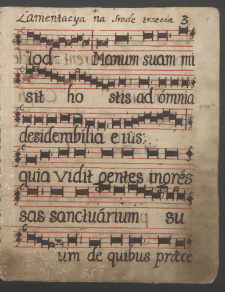 Lamentacya na Srode trzecia 3
iod. Manum suam mi
sit ho stis ad ómnia
desiderabilia eius:
quia vidit gentes ingrés
sas sanctuárium su
um de quibus præcé